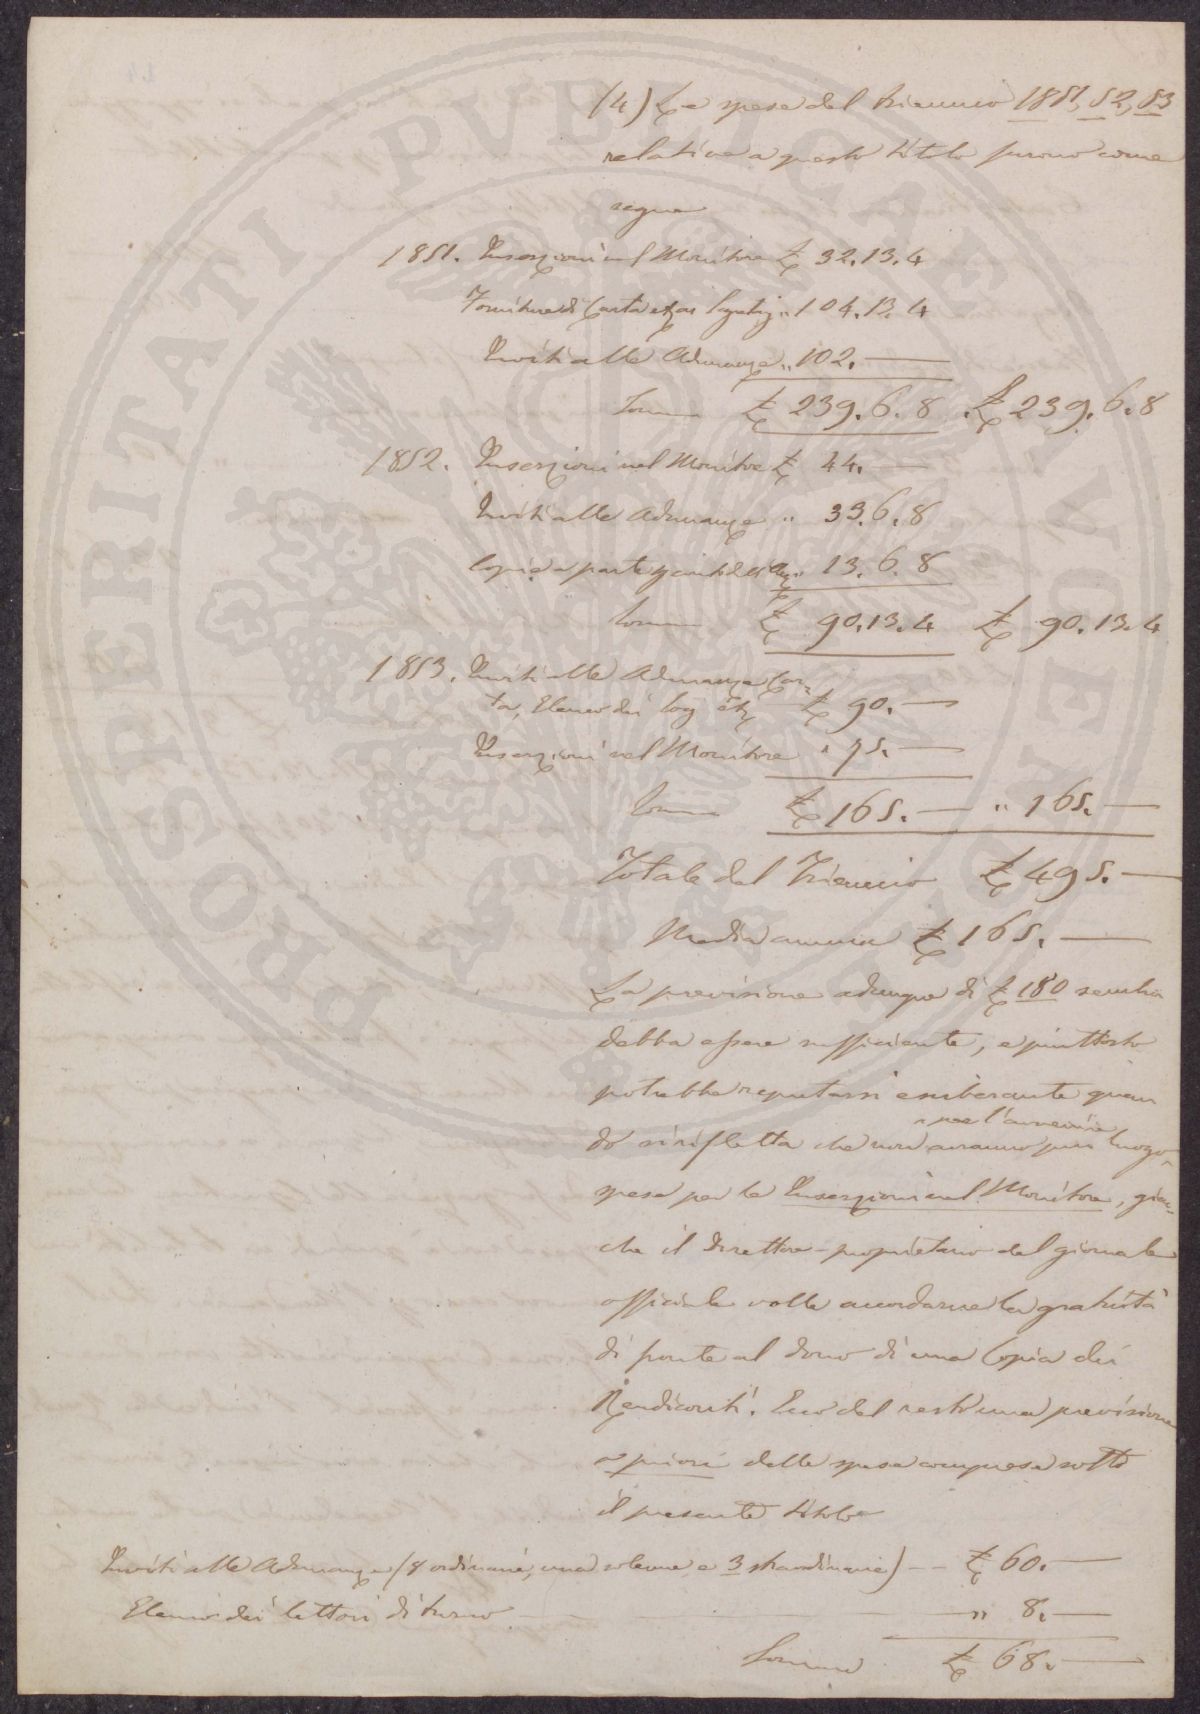 (4) Le spese del triennio 1851, 52, 53
relative a questo titolo furono come
segue
1851. Inserzioni nel Monitore £ 32. 13. 4
Forniture di Carta " 104. 13. 4
Inviti alle Adunanze " 102. —
Somma £ 239. 6. 8 £ 239. 6. 8
1852. Inserzioni nel Monitore £ 44. —
Inviti alle Adunanze " 33. 6. 8
Copie a parte " 13. 6. 8
Somma £ 90. 13. 4 £ 90. 13. 4
1853. Inviti alle Adunanze Car=
ta, Elenco dei £ 90. —
Inserzioni nel Monitore " 75. —
Somma £ 165. — " 165. —
Totale del Triennio £ 495. —
Media annua £ 165. —
La previsione adunque di £ 180 sembra
debba essere sufficiente, e piuttosto
potrebbe reputarsi esuberante quan
do si rifletta che non avranno più luogo
per l'avvenire
spese per le Inserzioni nel Monitore, giac=
che il Direttore-proprietario del giornale
officiale volle accordarne la gratuità
di fronte al dono di una Copia dei
Rendiconti. Ecco del resto una previsione
a priori delle spese comprese sotto
il presente titolo
Inviti alle Adunanze (8 ordinarie, una solenne e 3 straordinarie) — £ 60. —
Elenco dei lettori di turno — " 8. —
Somma £ 68. —
PROSPERITATI PVBLICAE